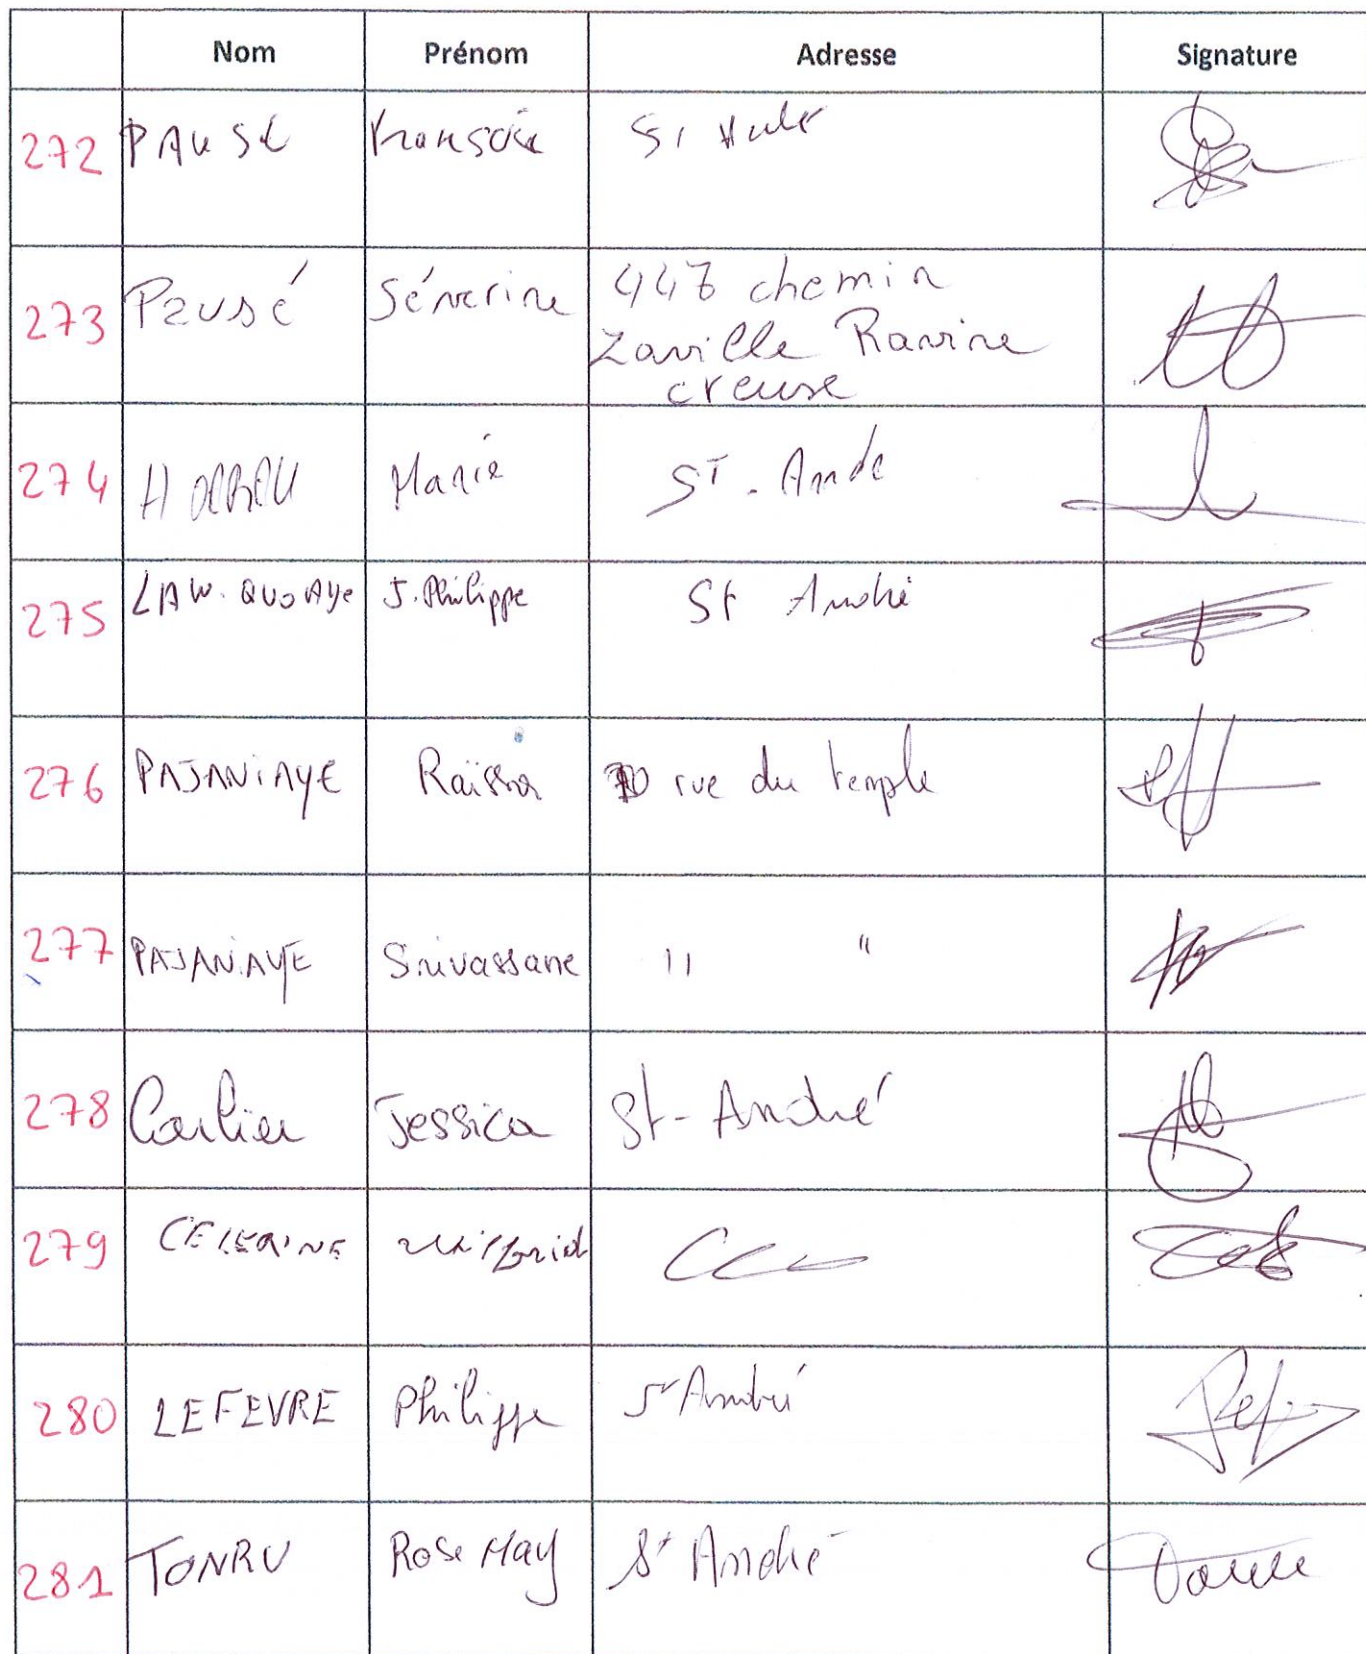 Nom Prénom Adresse Signature
272 PAUSE
273 Pausé Séverine 447 chemin
Zaville Ravine
creuse
274 HOARAU Marie ST. André
275 LAW. QUO AYe J. Philippe St André
276 PAJANiAYE Raïssa rue du temple
277 PAJANiAYE Srivassane " "
278 Carlier Jessica St-André
279 CELERINE
280 LEFEVRE Philippe St André
281 TONRU Rose May St André